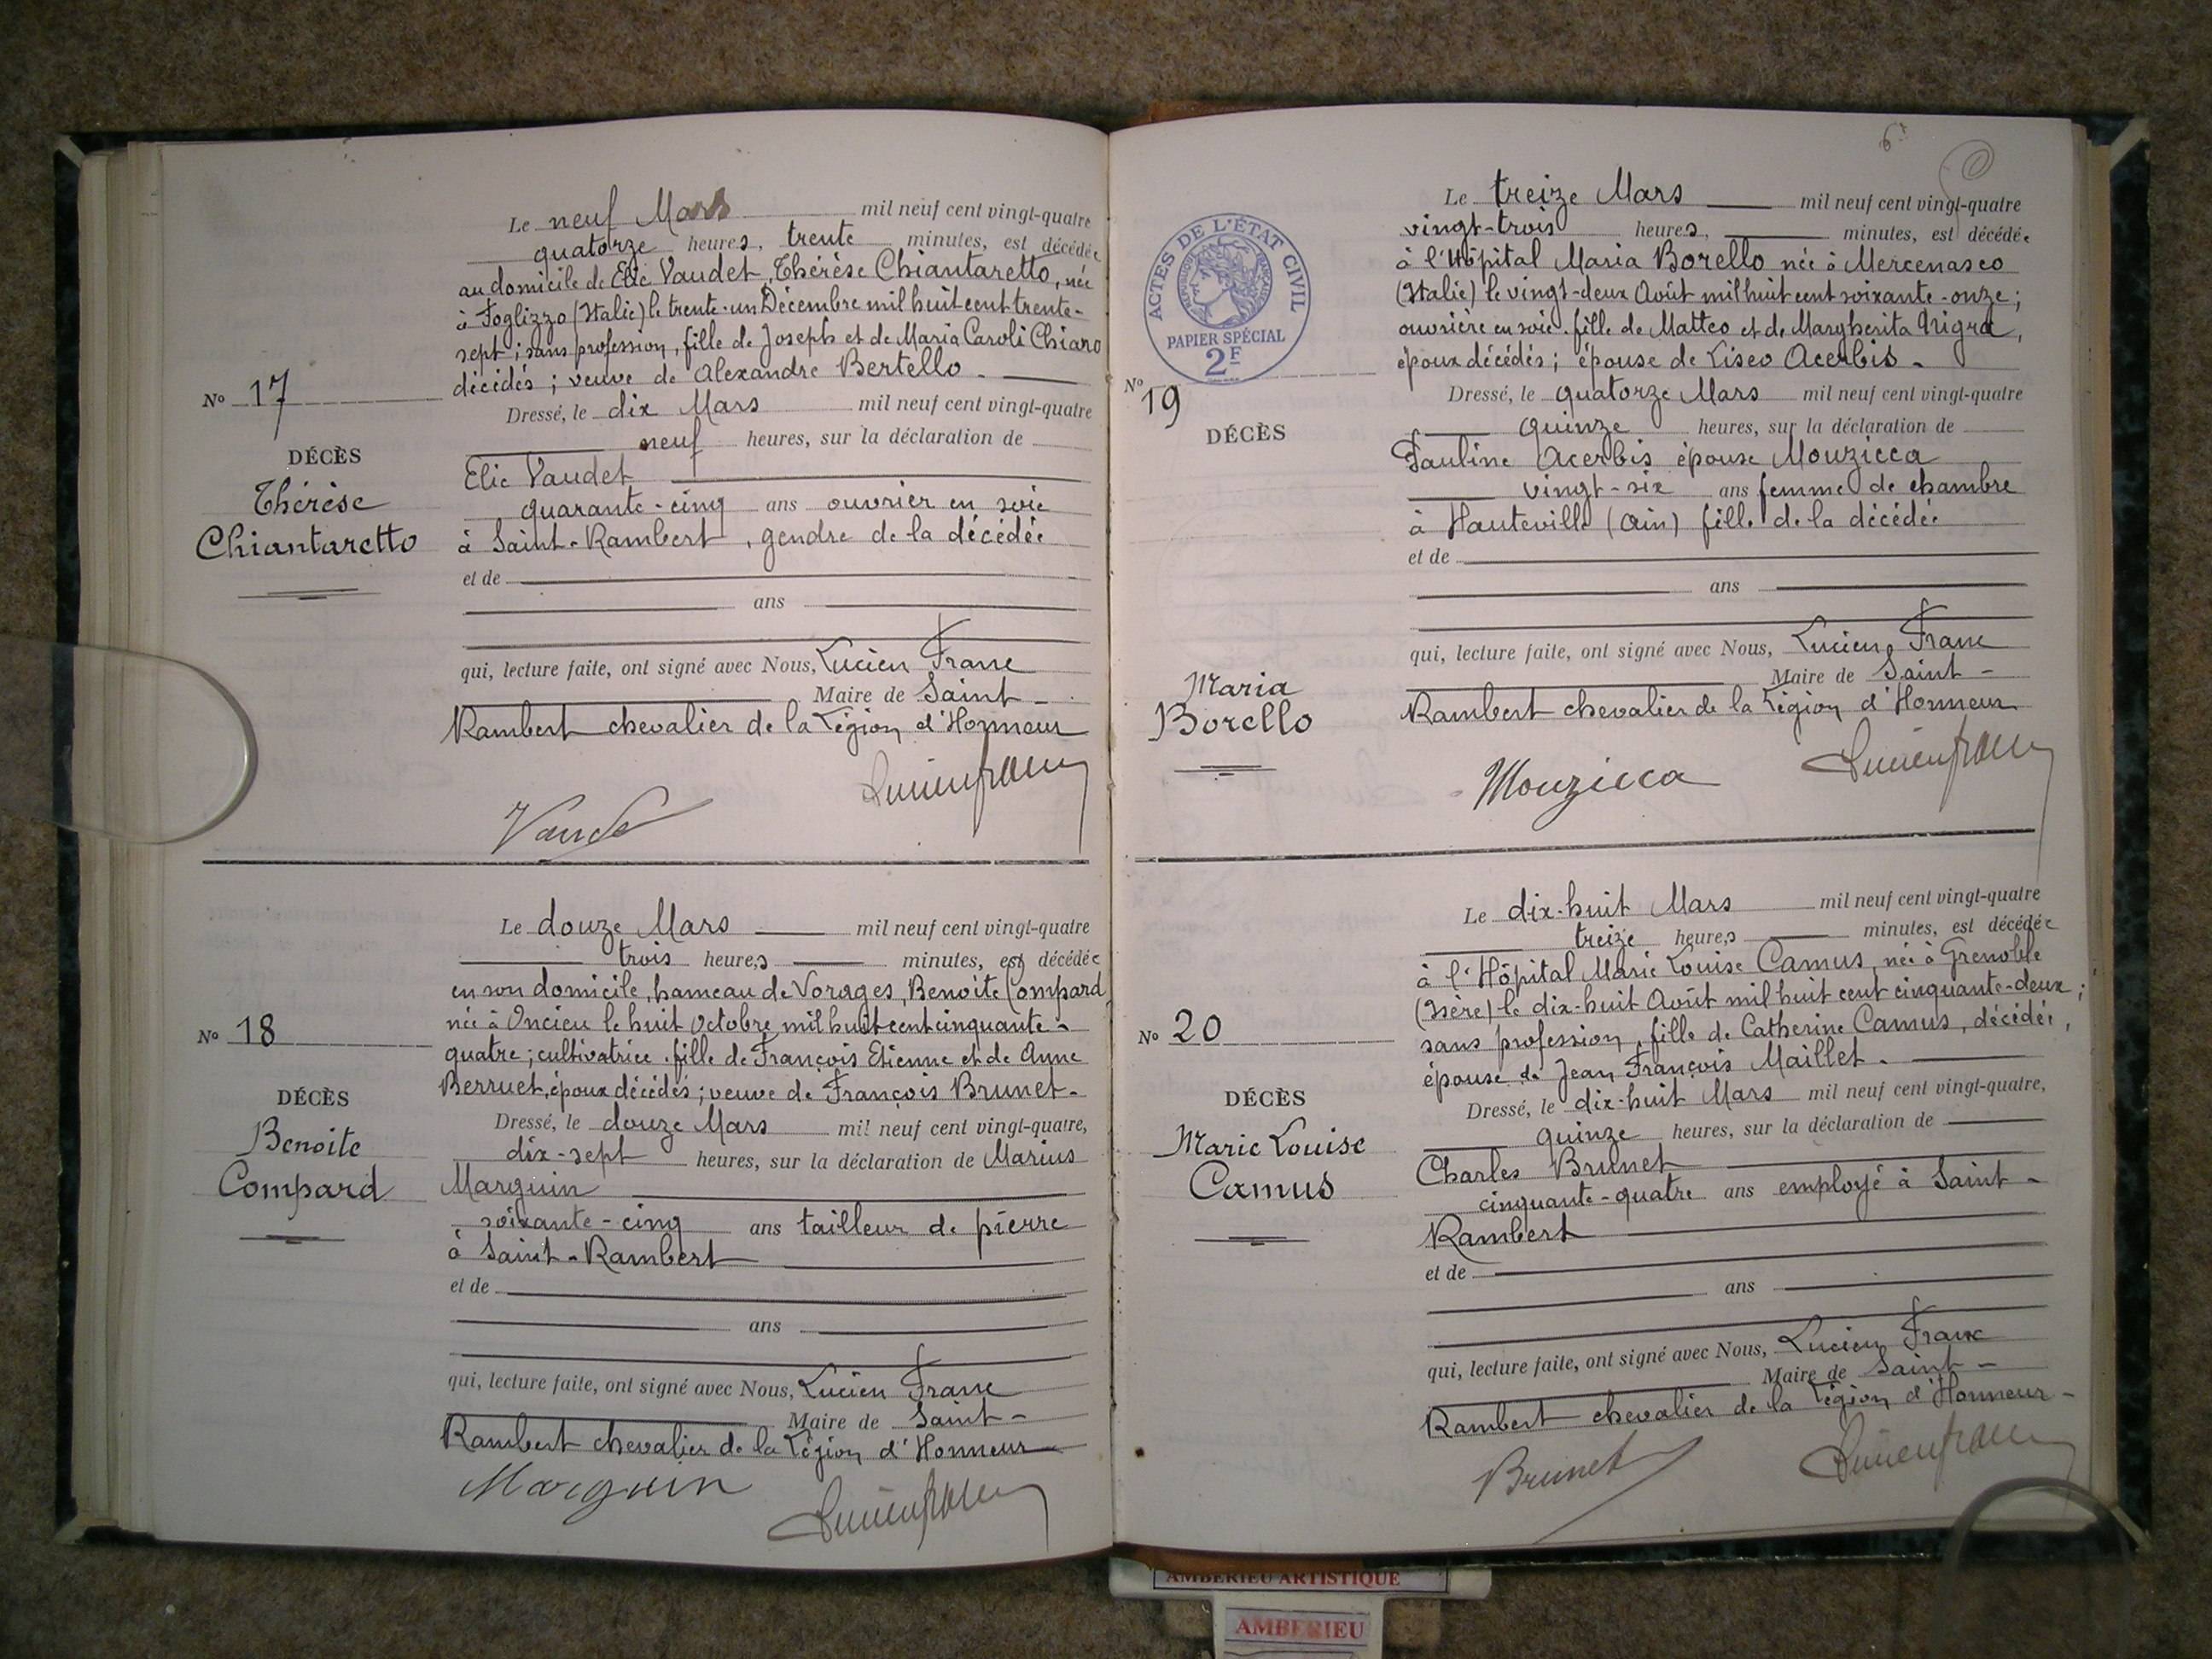 Le neuf Mars mil neuf cent vingt-quatre
quatorze heures, trente minutes, est décédée
au domicile de Elie Vaudet, Thérèse Chiantaretto, née
à Foglizzo (Italie) le trente-un Décembre mil huit cent trente-
sept; sans profession, fille de Joseph et de Maria Caroli Chiaro
décédés; veuve de Alexandre Bertello.
No 17
Dressé, le dix Mars mil neuf cent vingt-quatre
neuf heures, sur la déclaration de
DÉCÈS
Thérèse
Chiantaretto
Elie Vaudet
quarante-cinq ans ouvrier en soie
à Saint-Rambert, gendre de la décédée
et de
ans
qui, lecture faite, ont signé avec Nous, Lucien Franc
Maire de Saint-
Rambert chevalier de la Légion d'Honneur
Lucien franc
Le douze Mars mil neuf cent vingt-quatre
trois heures minutes, est décédée
en son domicile, hameau de Vorages, Benoite Compard
née à Oncieu le huit Octobre mil huit cent cinquante-
quatre; cultivatrice. fille de François Etienne et de Anne
Berruet, époux décédés; veuve de François Brunet.
No 18
DÉCÈS
Benoite
Compard
Dressé, le douze Mars mil neuf cent vingt-quatre,
dix-sept heures, sur la déclaration de Marius
Marguin
soixante-cinq ans tailleur de pierre
à Saint-Rambert
et de
ans
qui, lecture faite, ont signé avec Nous, Lucien Franc
Maire de Saint-
Rambert chevalier de la Légion d'Honneur
Marguin
Lucien franc
6
ACTES DE L'ÉTAT CIVIL
RÉPUBLIQUE FRANÇAISE
PAPIER SPÉCIAL
2F
Le treize Mars mil neuf cent vingt-quatre
vingt-trois heures, minutes, est décédée
à l'Hôpital Maria Borello née à Mercenasco
(Italie) le vingt-deux Août mil huit cent soixante-onze;
ouvrière en soie. fille de Matteo et de Margherita Nigra,
époux décédés; épouse de Liseo Acerbis.
No 19
DÉCÈS
Maria
Borello
Dressé, le quatorze Mars mil neuf cent vingt-quatre
quinze heures, sur la déclaration de
Pauline Acerbis épouse Mouzicca
vingt-six ans femme de chambre
à Hauteville (Ain) fille de la décédée
et de
ans
qui, lecture faite, ont signé avec Nous, Lucien Franc
Maire de Saint-
Rambert chevalier de la Légion d'Honneur
Mouzicca
Lucien franc
Le dix-huit Mars mil neuf cent vingt-quatre
treize heures minutes, est décédée
à l'Hôpital Marie Louise Camus, née à Grenoble
(Isère) le dix-huit Août mil huit cent cinquante-deux;
sans profession, fille de Catherine Camus, décédée,
épouse de Jean François Maillet.
No 20
DÉCÈS
Marie Louise
Camus
Dressé, le dix-huit Mars mil neuf cent vingt-quatre,
quinze heures, sur la déclaration de
Charles Brunet
cinquante-quatre ans employé à Saint-
Rambert
et de
ans
qui, lecture faite, ont signé avec Nous, Lucien Franc
Maire de Saint-
Rambert chevalier de la Légion d'Honneur-
Brunet
Lucien franc
AMBERIEU ARTISTIQUE
AMBERIEU